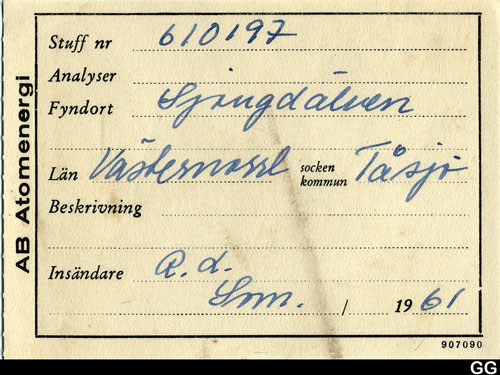 AB Atomenergi
Stuff nr 610197
Analyser
Fyndort Sjougdälven
Län Västernorrl socken kommun Tåsjö
Beskrivning
Insändare R. d.
Som. / 1961
907090
GG